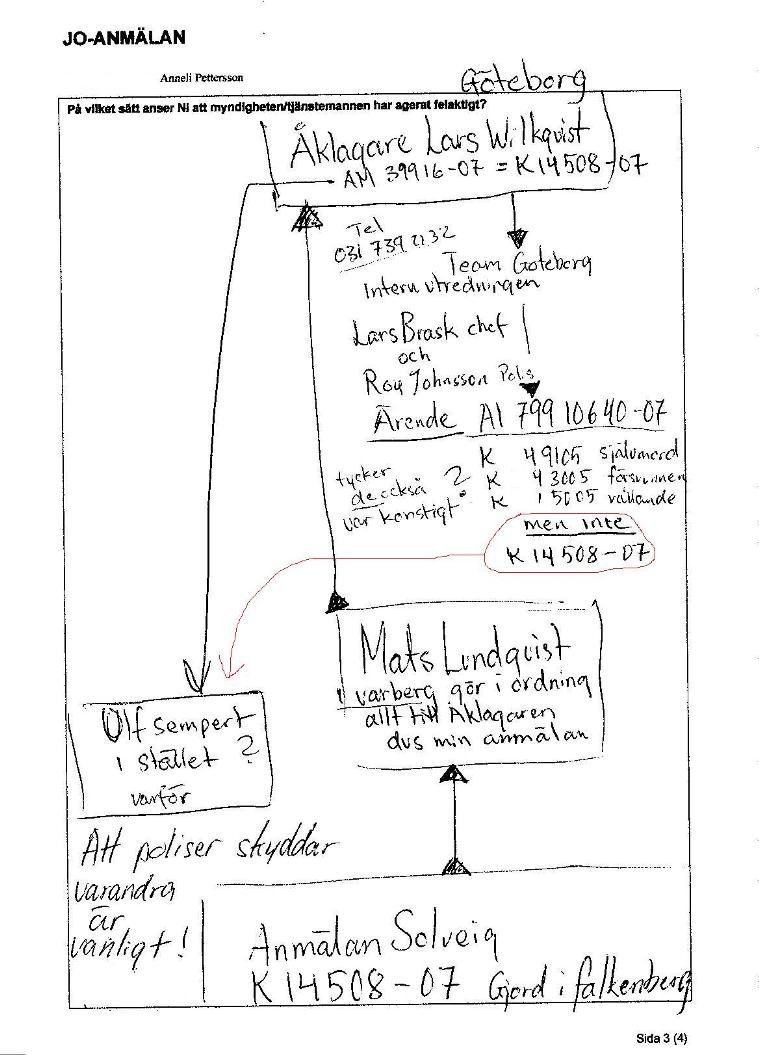 JO-ANMÄLAN
Anneli Pettersson
Göteborg
På vilket sätt anser Ni att myndigheten/tjänstemannen har agerat felaktigt?
Åklagare Lars Wilkqvist
AM 39916-07 = K14508-07
Tel
031 739 2132
Team Goteborg
Intern utredningen
Lars Brask chef
och
Roy Johnsson Polis
Ärende AI 799 10640-07
K 49105 självmord
K 43005 försvunnen
K 15005 vållande
tycker
de också ?
var konstigt
men inte
K 14508-07
Mats Lundquist
varberg gör i ordning
allt till Åklagaren
dvs min anmälan
Ulf sempert
i stället ?
varför
Att poliser skyddar
varandra
är
vanligt!
Anmälan Solveig
K 14508-07 Gjord i falkenberg
Sida 3 (4)